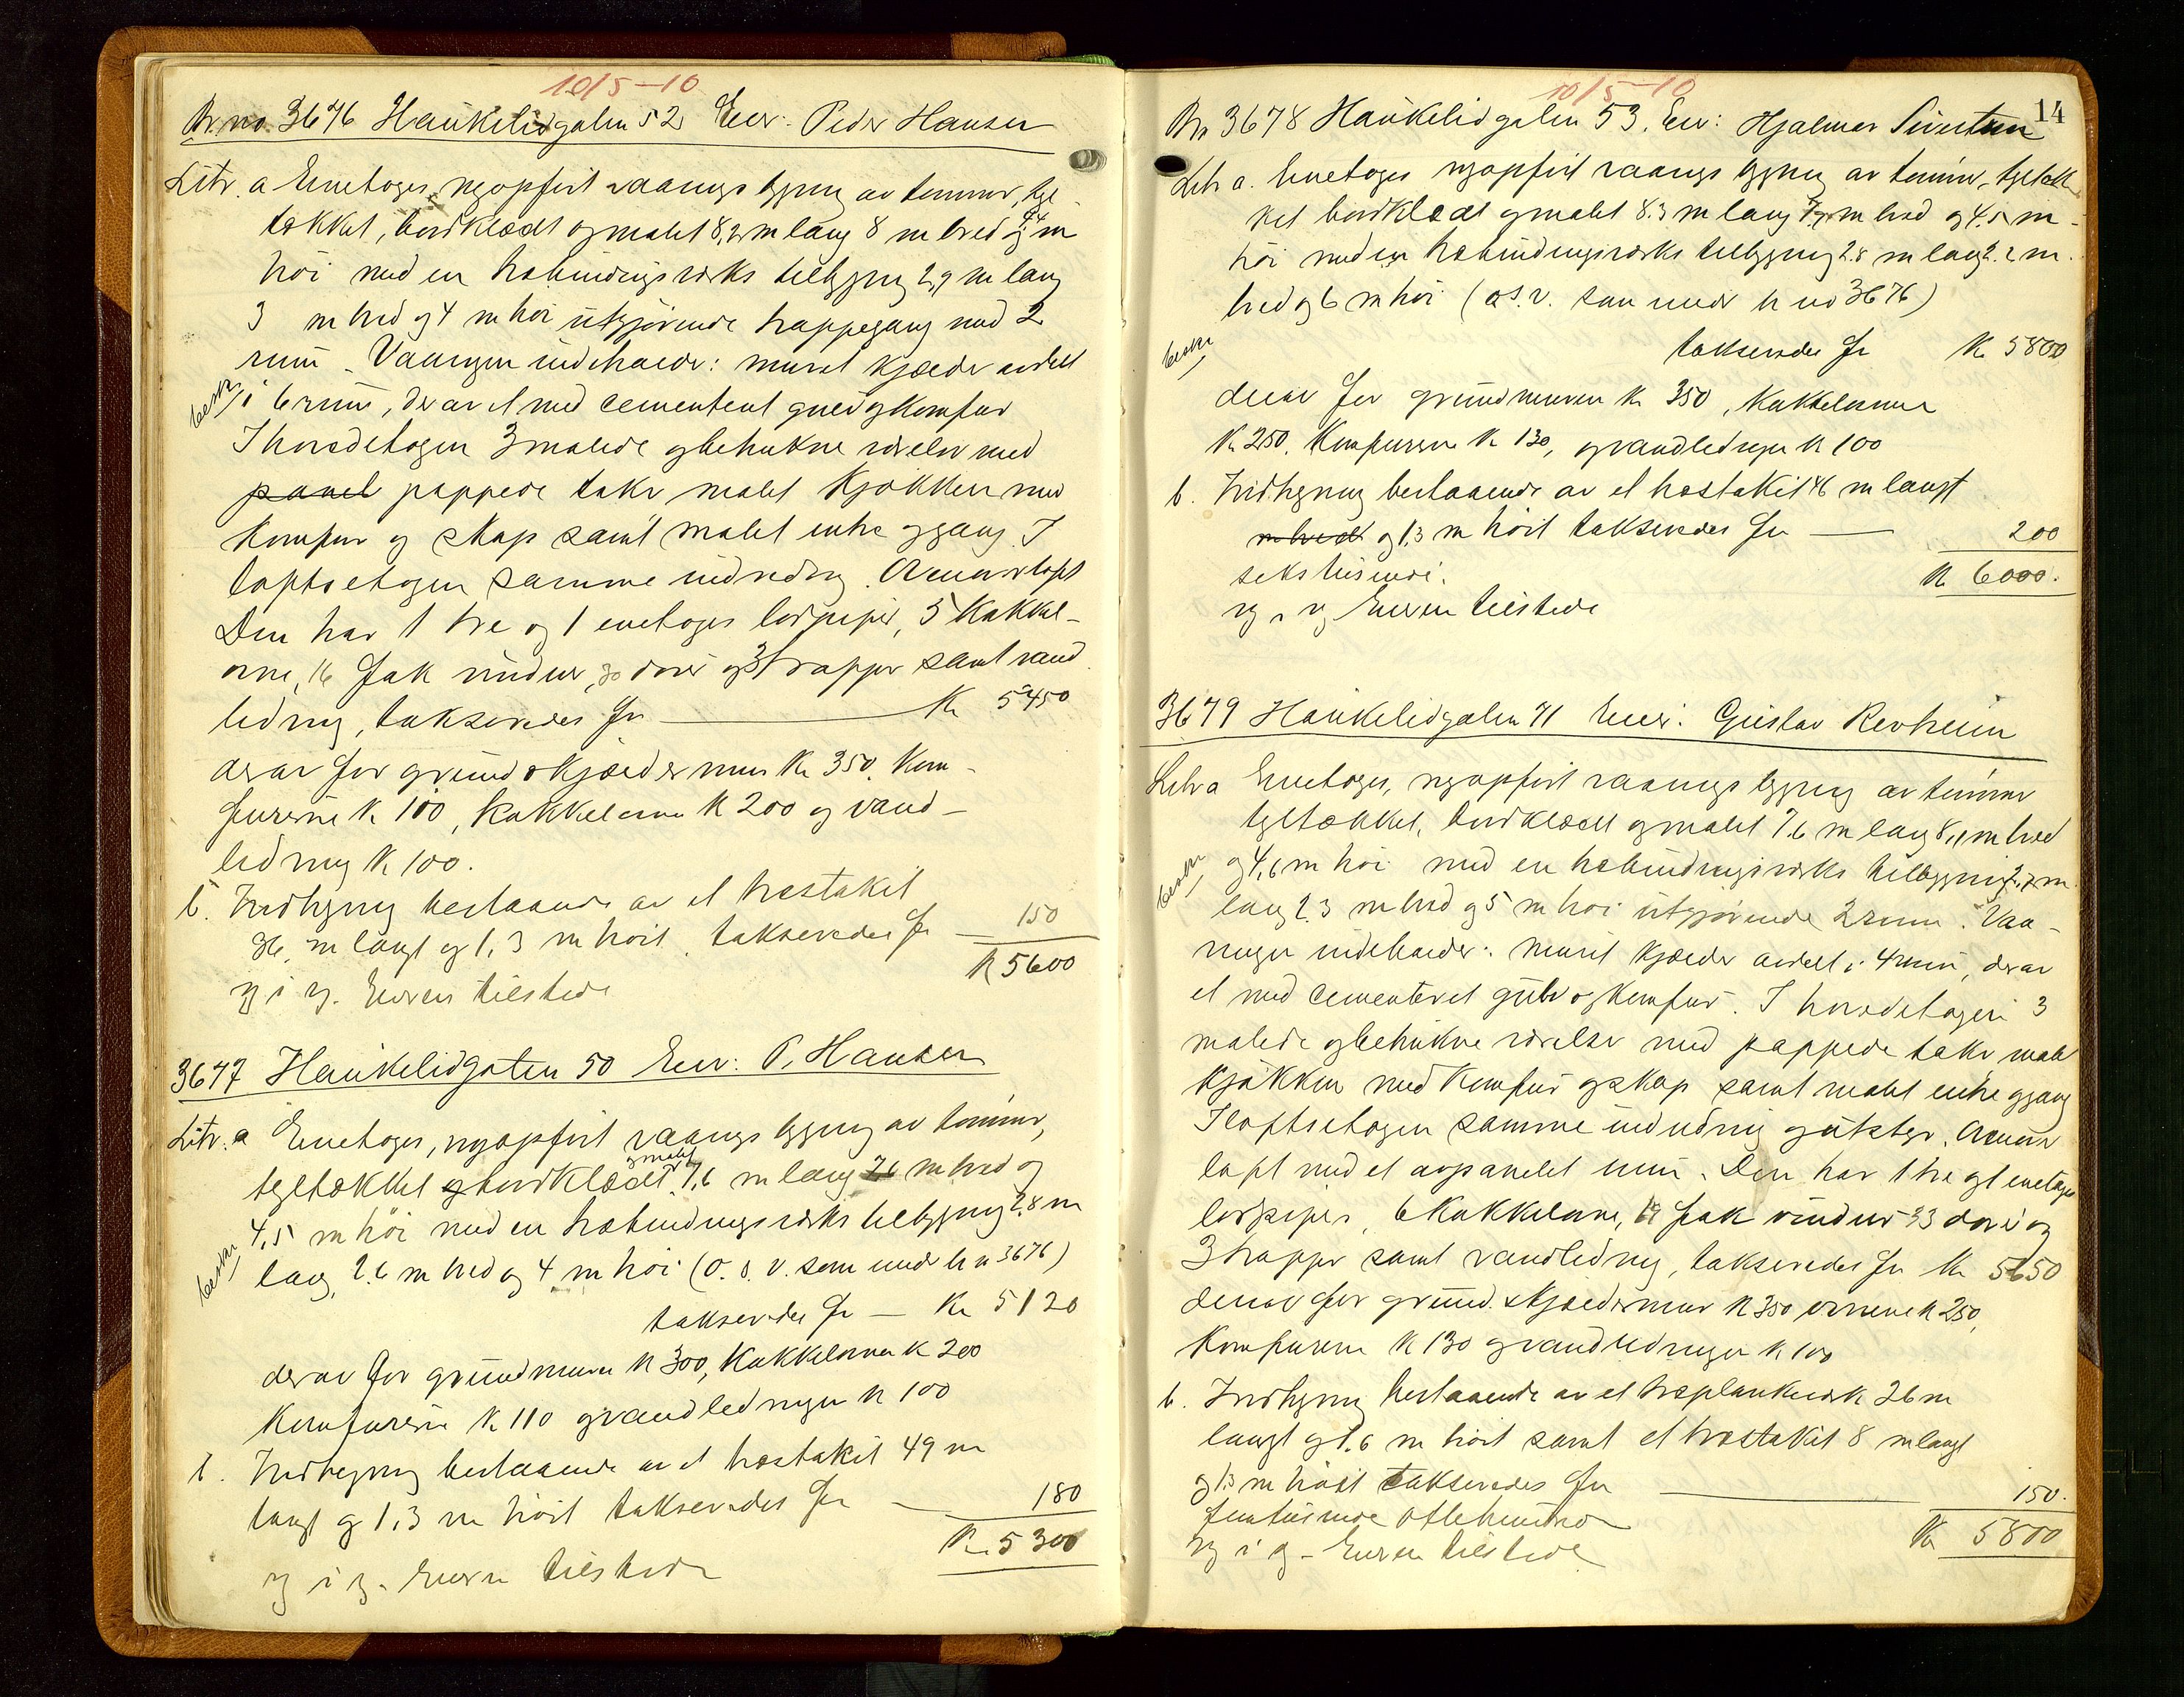 10/5-10
Br. no. 3676 Haukelidgaten 52 Eier: Peder Hansen
Litr. a Enetages, nyopfört vaaningsbygning av tømmer, tegl
tækket, bordklædt og malet 8,2 m lang 8 m bred og 4,4 m
höi med en træbindingsværks tilbygning 2,9 m lang
3 m bred og 4 m höi utgjörende trappegang med 2
rum. Vaaningen indeholder: muret kjælder avdelt
beskr. i 6 rum, derav et med cementert gulv og komfur
I hovedetagen 3 malede og betrukne værelser med
panel pappede take malet kjökken med
komfur og skap samt malet entre og gang. I
loftsetagen samme indredning. Amerikaloft
Den har 1 tre og 1 enetages lodpiper, 5 kakkel-
ovne, 16 fak vinduer, 30 dører og 3 trapper samt vand
ledning, takseredes for — Kr 5450
derav for grund & kjældermur Kr 350. Kom-
furerne K 100, kakkelovne K 200 og vand-
ledning K 100.
b. Indhegning bestaaende av et træstakit
36 m langt og 1,3 m höit takseredes for — 150
K 5600
Eieren tilstede
3677 Haukelidgaten 50 Eier: P. Hansen
Litr. a Enetages, nyopfört vaaningsbygning av tömmer,
tegltækket og bordklædt og malet 7,6 m lang 7,6 m bred og
4,5 m höi med en træbindingsværks tilbygning 2,8 m
beskr. lang, 2.6 m bred og 4 m höi (o. s. v. som under br n 3676)
takseredes for — Kr 5120
derav for grundmuren K 300, kakkelovne K 200
Komfurerne K 110 og vandledningen K 100
b. Indhegning bestaaende av et træstakit 49 m
langt og 1,3 m höit takseredes for — 180
K. 5300
Eieren tilstede
10/5-10
14
Br 3678 Haukelidgaten 53. Eier: Hjalmar Sivertsen
Litr a. Enetages nyopfört vaaningsbygning av tömmer, tegltæk
ket bordklædt og malet 8.3 m lang 7,9 m bred og 4,5 m
höi med en træbindingsværks tilbygning 2.8 m lang 2.2 m
bred og 6 m höi (o. s. v. som under br no 3676)
beskr.
takseredes for K. 5800
derav for grundmuren K 350, kakkelovne
K 250. Komfurerne K 130, og vandledningen K 100
b. Indhegning bestaaende av et træstakit 46 m langt
m bredt og 1,3 m höit takseredes for — 200
sekstusinde. K 6000.
Eieren tilstede
3679 Haukelidgaten 71 Eier: Gustav Revheim
Litr a Enetages, nyopfört vaaningsbygning av tömmer
tegltækket, bordklædt og malet 7.6 m lang 8,1 m bred
beskr. og 4,6 m höi med en træbindingsværks tilbygning 2,7 m
lang 2.3 m bred og 5 m höi utgjörende 2 rum. Vaa-
ningen indeholder: muret kjælder avdelt i 4 rum, derav
et med cementeret gulv og komfur. I hovedetagen 3
malede og betrukne værelser med pappede take malet
kjökken med komfur og skap samt malet entre og gang
I loftsetagen samme indredning og utstyr. Amerika
loft med et avpanelet rum. Den har 1 tre og 1 enetages
lodpiper, 6 kakkelovne, 19 fak vinduer 33 dører og
3 trapper samt vandledning, takseredes for Kr 5650
derav for grund & kjældermur K 350 ovnene K 250,
Komfurerne K 130 og vandledningen K 100
b. Indhegning bestaaende av et træplankeværk 26 m
langt og 1.6 m höit samt et træstakit 8 m langt
og 1.3 m höit takseredes for — 150.
femtusinde ottehundrede K 5800
Eieren tilstede